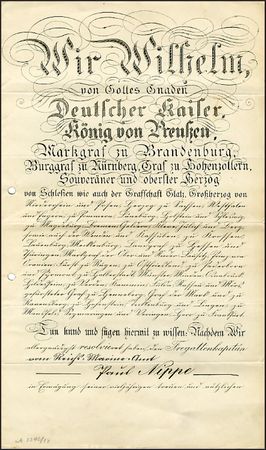 Wir Wilhelm,
von Gottes Gnaden
Deutscher Kaiser,
König von Preußen,
Markgraf zu Brandenburg,
Burggraf zu Nürnberg, Graf zu Hohenzollern,
Souveräner und oberster Herzog
von Schlesien wie auch der Grafschaft Glatz, Großherzog von
Niederrhein und Posen, Herzog zu Sachsen, Westphalen
und Engern, zu Pommern, Lüneburg, Holstein und Schleswig,
zu Magdeburg, Bremen, Geldern, Cleve, Jülich und Berg,
sowie auch der Wenden und Kassuben, zu Krossen,
Lauenburg, Mecklenburg, Landgraf zu Hessen und
Thüringen, Markgraf der Ober und Nieder Lausitz, Prinz von
Oranien, Fürst zu Rügen, zu Ostfriesland, Paderborn
und Pyrmont, zu Halberstadt, Münster, Minden, Osnabrück,
Hildesheim, zu Verden, Kammin, Fulda, Nassau und Mörs,
gefürsteter Graf zu Henneberg, Graf der Mark und zu
Ravensberg, zu Hohenstein, Tecklenburg und Lingen, zu
Mansfeld, Sigmaringen und Veringen, Herr zu Frankfurt
Tun kund und fügen hiermit zu wissen: Nachdem Wir
allergnädigst resolvieret haben, den Fregattenkapitän
vom Reichs-Marine-Amt
Paul Nippe
in Erwägung seiner vieljährigen treuen und nützlichen